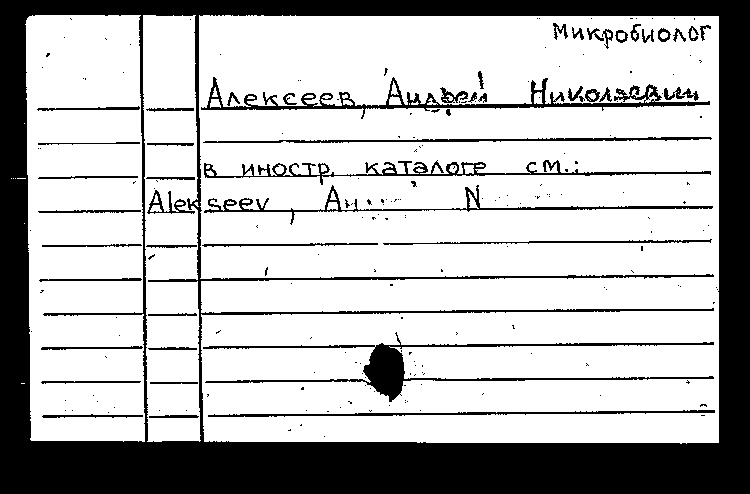 Микробиолог
Алексеев, Андрей Николаевич
в иностр. каталоге см.:
Alekseev, N